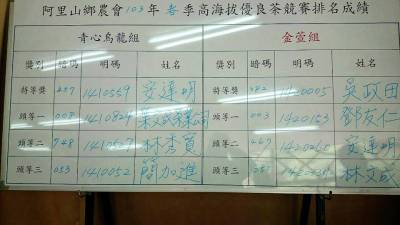 阿里山鄉農會103年春季高海拔優良茶競賽排名成績
青心烏龍組 金萱組
獎別 暗碼 明碼 姓名 獎別 暗碼 明碼 姓名
特等獎 1410559 安達明 特等獎 吳政田
頭等一 008 1410829 頭等一 003 1420153 鄧友仁
頭等二 748 林秀寬 頭等二 467 安達明
頭等三 053 1410052 簡加進 頭等三 林文成